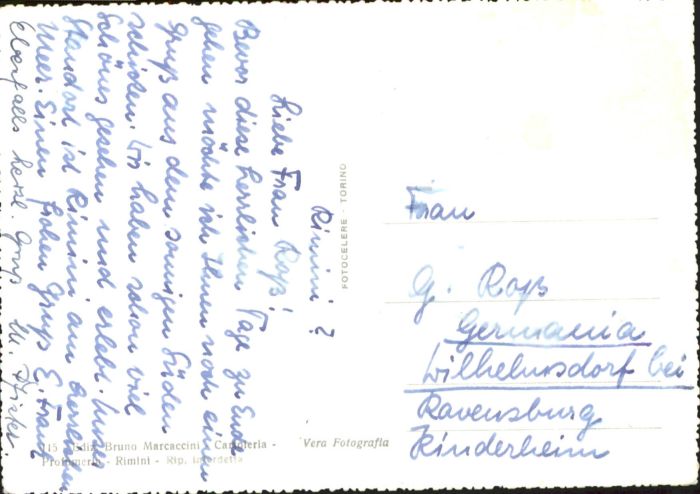 Rimini ?
Liebe Frau Roß!
Bevor diese herrlichen Tage zu Ende
gehen möchte ich Ihnen noch einen
Gruß aus dem sonnigen Süden
schicken. Wir haben schon viel
Schönes gesehen und erlebt. Unser
Standort ist Rimini am
Meer. Einen frohen Gruß E.
Ebenfalls herzl. Gruß
FOTOCELERE - TORINO
Frau
G. Roß
Germania
Wilhelmsdorf bei
Ravensburg
Kinderheim
115 Ediz. Bruno Marcaccini - Cartoleria -
Profumeria - Rimini - Rip. interdetta
Vera Fotografia